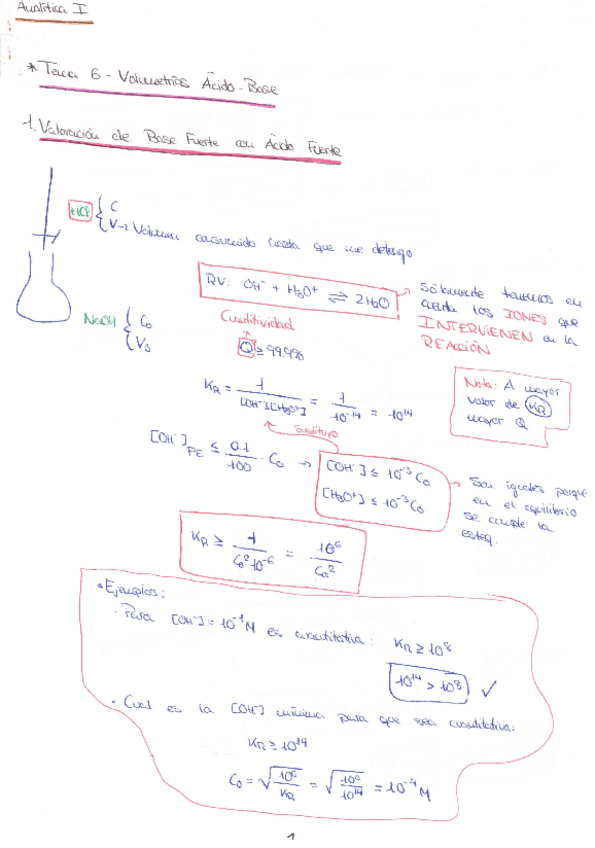 Analítica I
* Tema 6 - Volumetrías Ácido-Base
1. Valoración de Base Fuerte con Ácido Fuerte
HCl { C
V → Volumen consumido hasta que me detengo
RV: OH⁻ + H₃O⁺ ⇌ 2H₂O → Sólamente tenemos en
cuenta los IONES que
INTERVIENEN en la
REACCIÓN
NaOH { C₀
V₀
Cuantitividad
Q ≥ 99.9%
K_R = 1/([OH⁻][H₃O⁺]) = 1/10⁻¹⁴ = 10¹⁴
Nota: A mayor
valor de K_R
mayor Q
Sustituyo
[OH⁻]_PE ≤ 0.1/100 · C₀ → [OH⁻] ≤ 10⁻³C₀
[H₃O⁺] ≤ 10⁻³C₀
→ Son iguales porque
en el equilibrio
se cumple la
esteq.
K_R ≥ 1/(C₀²10⁻⁶) = 10⁶/C₀²
• Ejemplos:
· Para [OH⁻] = 10⁻¹M es cuantitativa: K_R ≥ 10⁸
10¹⁴ > 10⁸ ✓
• Cual es la [OH⁻] mínima para que sea cuantitativa:
K_R ≥ 10¹⁴
C₀ = √(10⁶/K_R) = √(10⁶/10¹⁴) = 10⁻⁴M
1